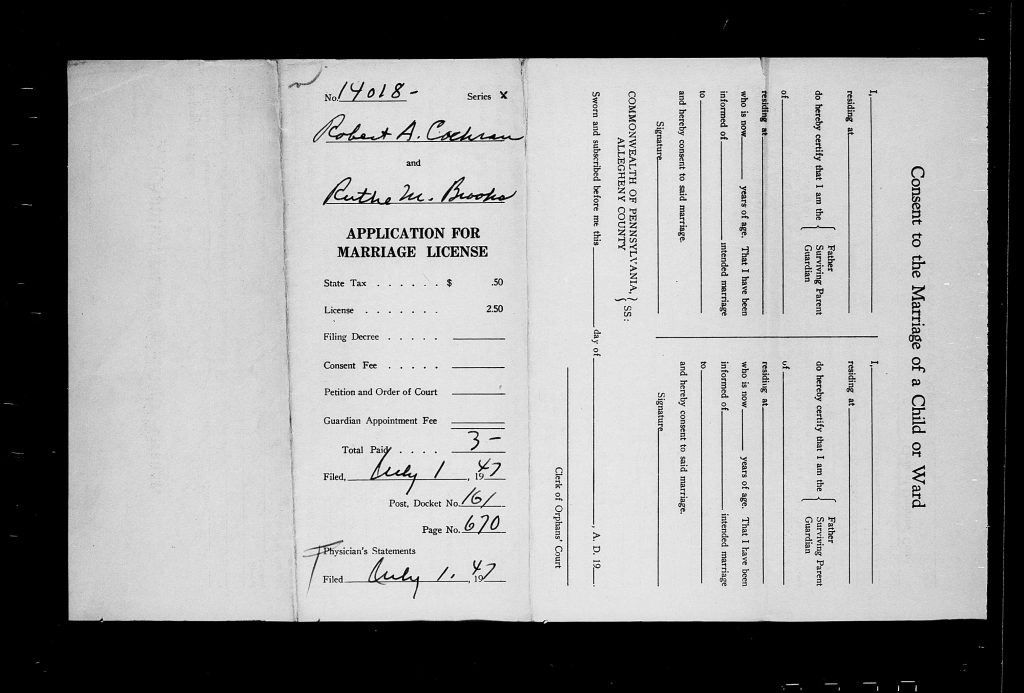 No. 14018- Series X
Robert A. Cochran
and
Ruthe M. Brooks
APPLICATION FOR
MARRIAGE LICENSE
State Tax . . . . . . $ .50
License . . . . . . . 2.50
Filing Decree . . . . .
Consent Fee . . . . .
Petition and Order of Court
Guardian Appointment Fee
Total Paid . . . . 3-
Filed, July 1, 1947
Post, Docket No. 161
Page No. 670
Physician's Statements
Filed July 1. 1947
Consent to the Marriage of a Child or Ward
I,
residing at
do hereby certify that I am the { Father
Surviving Parent
Guardian
of
residing at
who is now years of age. That I have been
informed of intended marriage
to
and hereby consent to said marriage.
Signature
I,
residing at
do hereby certify that I am the { Father
Surviving Parent
Guardian
of
residing at
who is now years of age. That I have been
informed of intended marriage
to
and hereby consent to said marriage.
Signature
COMMONWEALTH OF PENNSYLVANIA, } SS:
ALLEGHENY COUNTY
Sworn and subscribed before me this day of , A. D. 19
Clerk of Orphans' Court